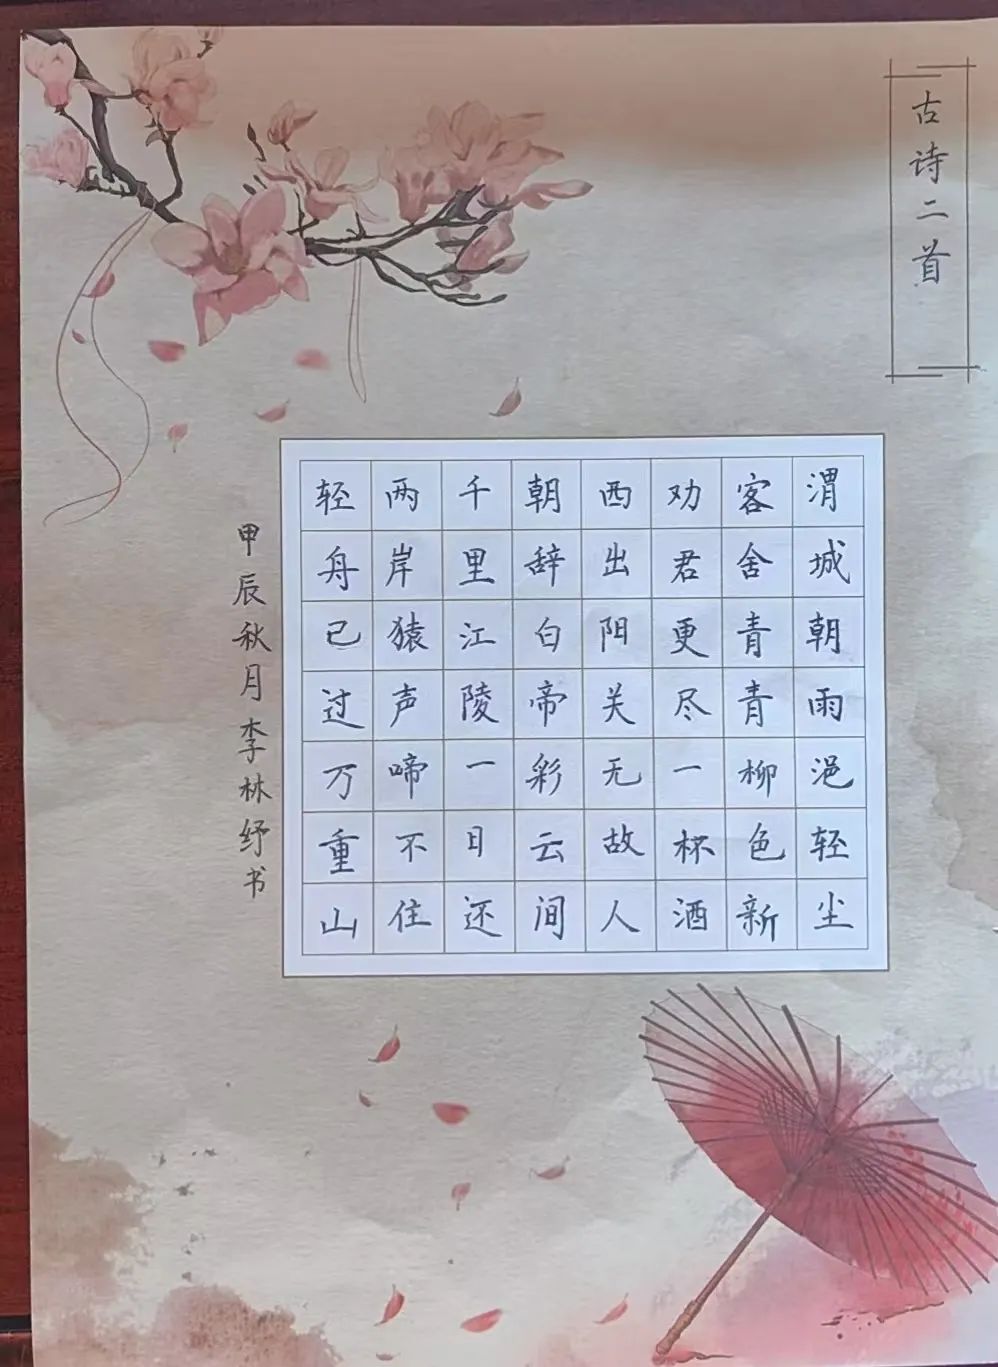 古诗二首
渭城朝雨浥轻尘
客舍青青柳色新
劝君更尽一杯酒
西出阳关无故人
朝辞白帝彩云间
千里江陵一日还
两岸猿声啼不住
轻舟已过万重山
甲辰秋月李林纾书